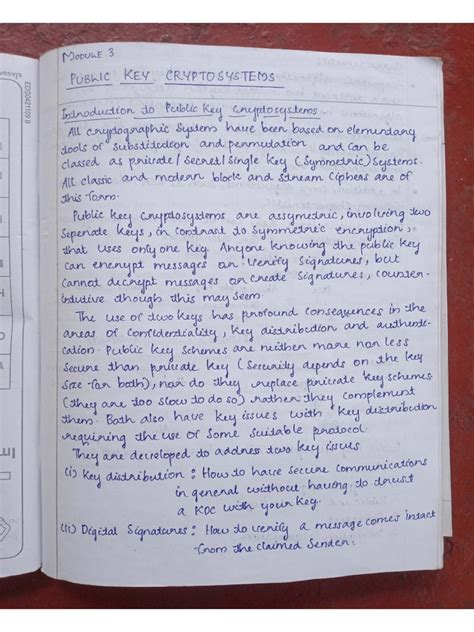 MODULE 3
PUBLIC KEY CRYPTOSYSTEMS
Introduction to Public Key Cryptosystems
All cryptographic systems have been based on elementary
tools of substitution and permutation and can be
classed as private / Secret / Single Key (Symmetric) Systems.
All classic and modern block and stream Ciphers are of
this form.
Public key cryptosystems are assymetric, involving two
seperate keys, in contrast to symmetric encryption,
that uses only one key. Anyone knowing the public key
can encrypt messages or Verify Signatures, but
cannot decrypt messages or create Signatures, counter-
intutive though this may seem.
The use of two keys has profound consequences in the
areas of confidentiality, key distribution and authenti-
cation. Public key schemes are neither more nor less
secure than private key (security depends on the key
size for both), nor do they replace private key schemes
(they are too slow to do so) rather they complement
them. Both also have key issues with key distribution
requiring the use of some suitable protocol.
They are developed to address two key issues
(i) Key distribution : How to have secure communications
in general without having to trust
a KDC with your key.
(ii) Digital Signatures : How to verify a message comes intact
from the claimed sender.